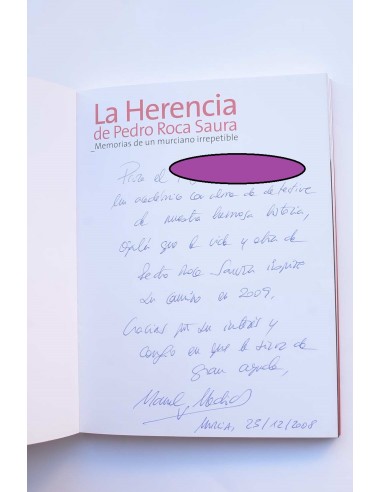 La Herencia
de Pedro Roca Saura
_Memorias de un murciano irrepetible
Para el
académico con alma de detective
de nuestra hermosa historia,
ojalá que la vida y obra de
Pedro Roca Saura inspire
su camino en 2009.
Gracias por su interés y
confío en que le sirva de
gran ayuda.
Murcia, 23/12/2008